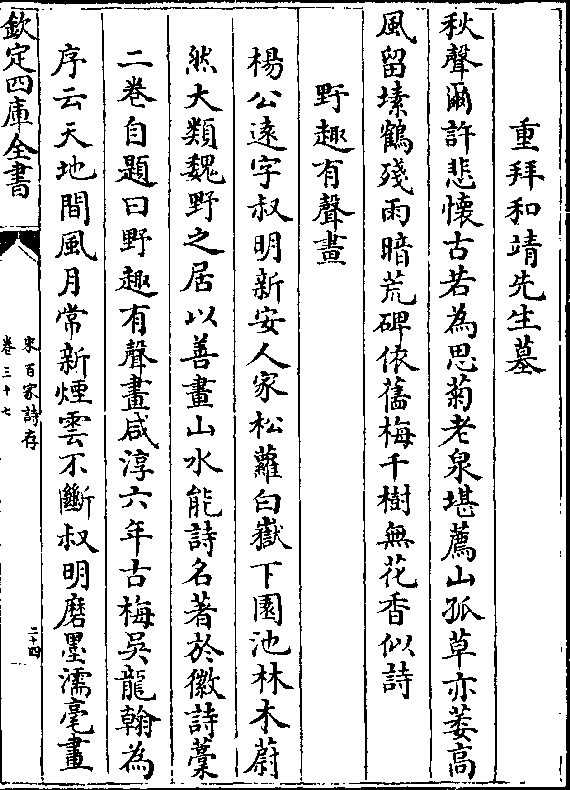 重拜和靖先生墓
秋聲爾許悲懷古若為思菊老泉堪薦山孤草亦萎高
風留塑鶴殘雨暗荒碑依舊梅千樹無花香似詩
野趣有聲畫
楊公遠字叔明新安人家松蘿白嶽下園池林木蔚
然大類魏野之居以善畫山水能詩名著於徽詩藁
二卷自題曰野趣有聲畫咸淳六年古梅吳龍翰為
序云天地間風月常新煙雲不斷叔明磨墨濡毫畫
欽定四庫全書
宋百家詩存
卷三十七
二十四